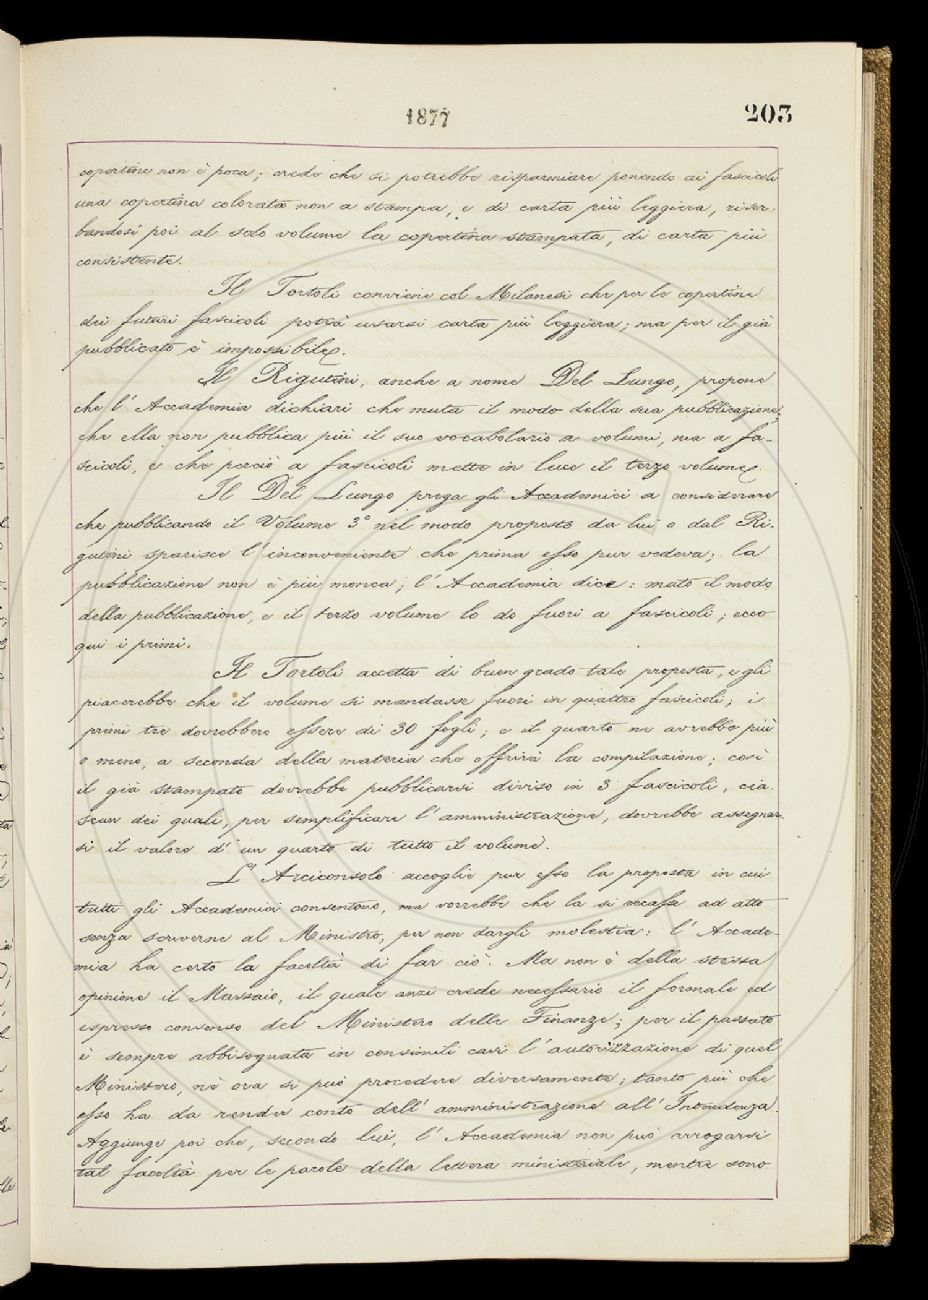 1877
203
copertine non è poca; crede che si potrebbe risparmiare ponendo ai fascicoli
una copertina colorata non a stampa, e di carta più leggiera, riser-
bandosi poi al solo volume la copertina stampata, di carta più
consistente.
Il Tortoli conviene col Milanesi che per le copertine
dei futuri fascicoli potrà usarsi carta più leggiera; ma per il già
pubblicato è impossibile.
Il Rigutini, anche a nome Del Lungo, propone
che l'Accademia dichiari che muta il modo della sua pubblicazione,
che ella non pubblica più il suo vocabolario a volumi, ma a fa-
scicoli, e che perciò a fascicoli mette in luce il terzo volume.
Il Del Lungo prega gli Accademici a considerare
che pubblicando il Volume 3° nel modo proposto da lui e dal Ri-
gutini sparisce l'inconveniente che prima esso pur vedeva; la
pubblicazione non è più monca; l'Accademia dice: muto il modo
della pubblicazione, e il terzo volume lo do fuori a fascicoli; ecco
qui i primi.
Il Tortoli accetta di buon grado tale proposta, e gli
piacerebbe che il volume si mandasse fuori in quattro fascicoli; i
primi tre dovrebbero essere di 30 fogli; e il quarto ne avrebbe più
o meno, a seconda della materia che offrirà la compilazione; così
il già stampato dovrebbe pubblicarsi diviso in 3 fascicoli, cia-
scun dei quali, per semplificare l'amministrazione, dovrebbe assegnar-
si il valore d'un quarto di tutto il volume.
L'Arciconsolo accoglie pur esso la proposta in cui
tutti gli Accademici consentono, ma vorrebbe che la si recasse ad atto
senza scriverne al Ministro, per non dargli molestia: l'Accade-
mia ha certo la facoltà di far ciò. Ma non è della stessa
opinione il Massaio, il quale anzi crede necessario il formale ed
espresso consenso del Ministero delle Finanze; per il passato
è sempre abbisognata in consimili casi l'autorizzazione di quel
Ministero, nè ora si può procedere diversamente; tanto più che
esso ha da render conto dell'amministrazione all'Intendenza.
Aggiunge poi che, secondo lui, l'Accademia non può arrogarsi
tal facoltà per le parole della lettera ministeriale, mentre sono